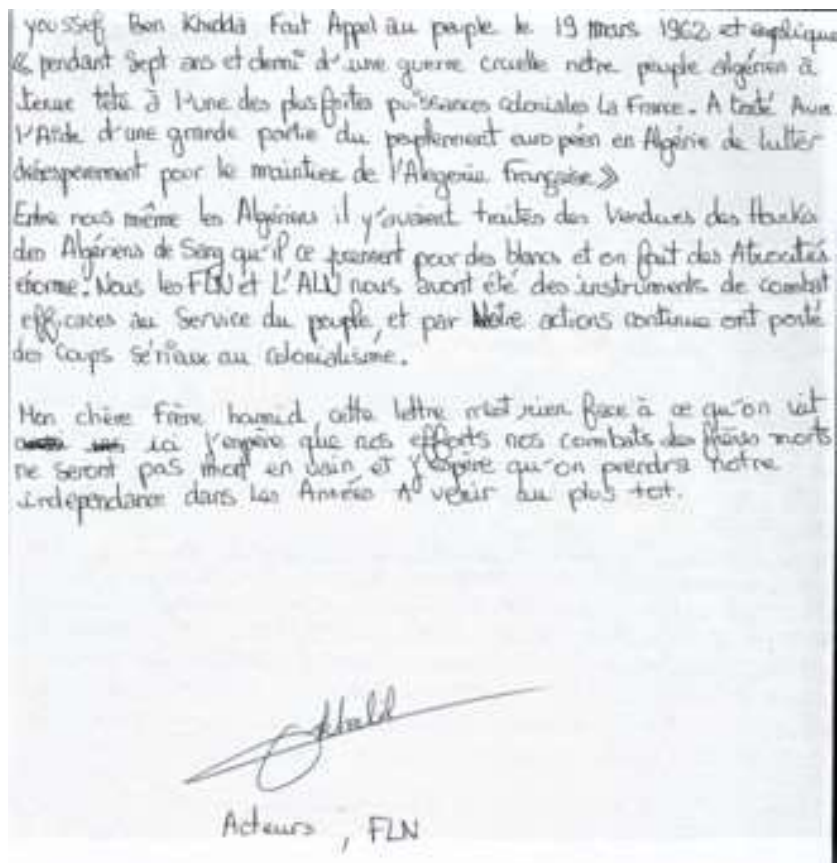 youssef Ben Khedda Fait Appel au peuple le 19 mars 1962 et explique
« pendant Sept ans et demi d'une guerre cruelle notre peuple algérien à
tenue tété à l'une des plus fortes puissances coloniales La France. A tenté Avec
l'Aide d'une grande partie du peuplement européen en Algérie de lutter
désesperement pour le maintien de l'Alegerie Française »
Entre nous même les Algériens il y'avaient traitès des Vendues des Harkis
des Algériens de Sang qu'il ce prennent pour des blancs et on fait des Atrocités
énorme. Nous les FLN et L'ALN nous avont été des instruments de combat
efficaces au Service du peuple, et par Notre actions continue ont porté
des Coups Sérieux au Colonialisme.
Mon chère Frère hamid cette lettre n'est rien face à ce qu'on vit
ici j'espère que nos efforts nos combats des frères morts
ne seront pas mort en vain et j'espère qu'on prendra notre
independance dans les Années A venir au plus tot.
Acteurs, FLN